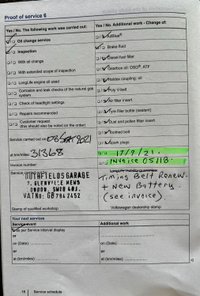 Proof of service 6
Yes / No. The following work was carried out:
Yes / No. Additional work - Change of:
Oil change service
Brake fluid
Inspection
Diesel fuel filter
With oil change
Gearbox oil: DSG®, ATF
With extended scope of inspection
Haldex coupling: oil
LongLife engine oil used
Poly V-belt
Corrosion and leak checks of the natural gas system
Air filter insert
Check of headlight settings
Repairs recommended
Dust and pollen filter insert
Customer request
(this should also be noted on the order)
Toothed belt
Service carried out on
Spark plugs
At km/miles 31368
17/9/21.
Invoice number
Invoice 05118.
OUTFIELDS GARAGE
7, GLENVILLE MEWS
LONDON, SW18 4NJ.
Timing Belt Renew.
+ New Battery.
(see invoice)
Stamp of qualified workshop
Volkswagen dealership stamp
Your next services
Service/event
Additional work
As per Service interval display
or
on (Date)
on (Date)
or
or
at (km/miles)
at (km/miles)
14
Service schedule